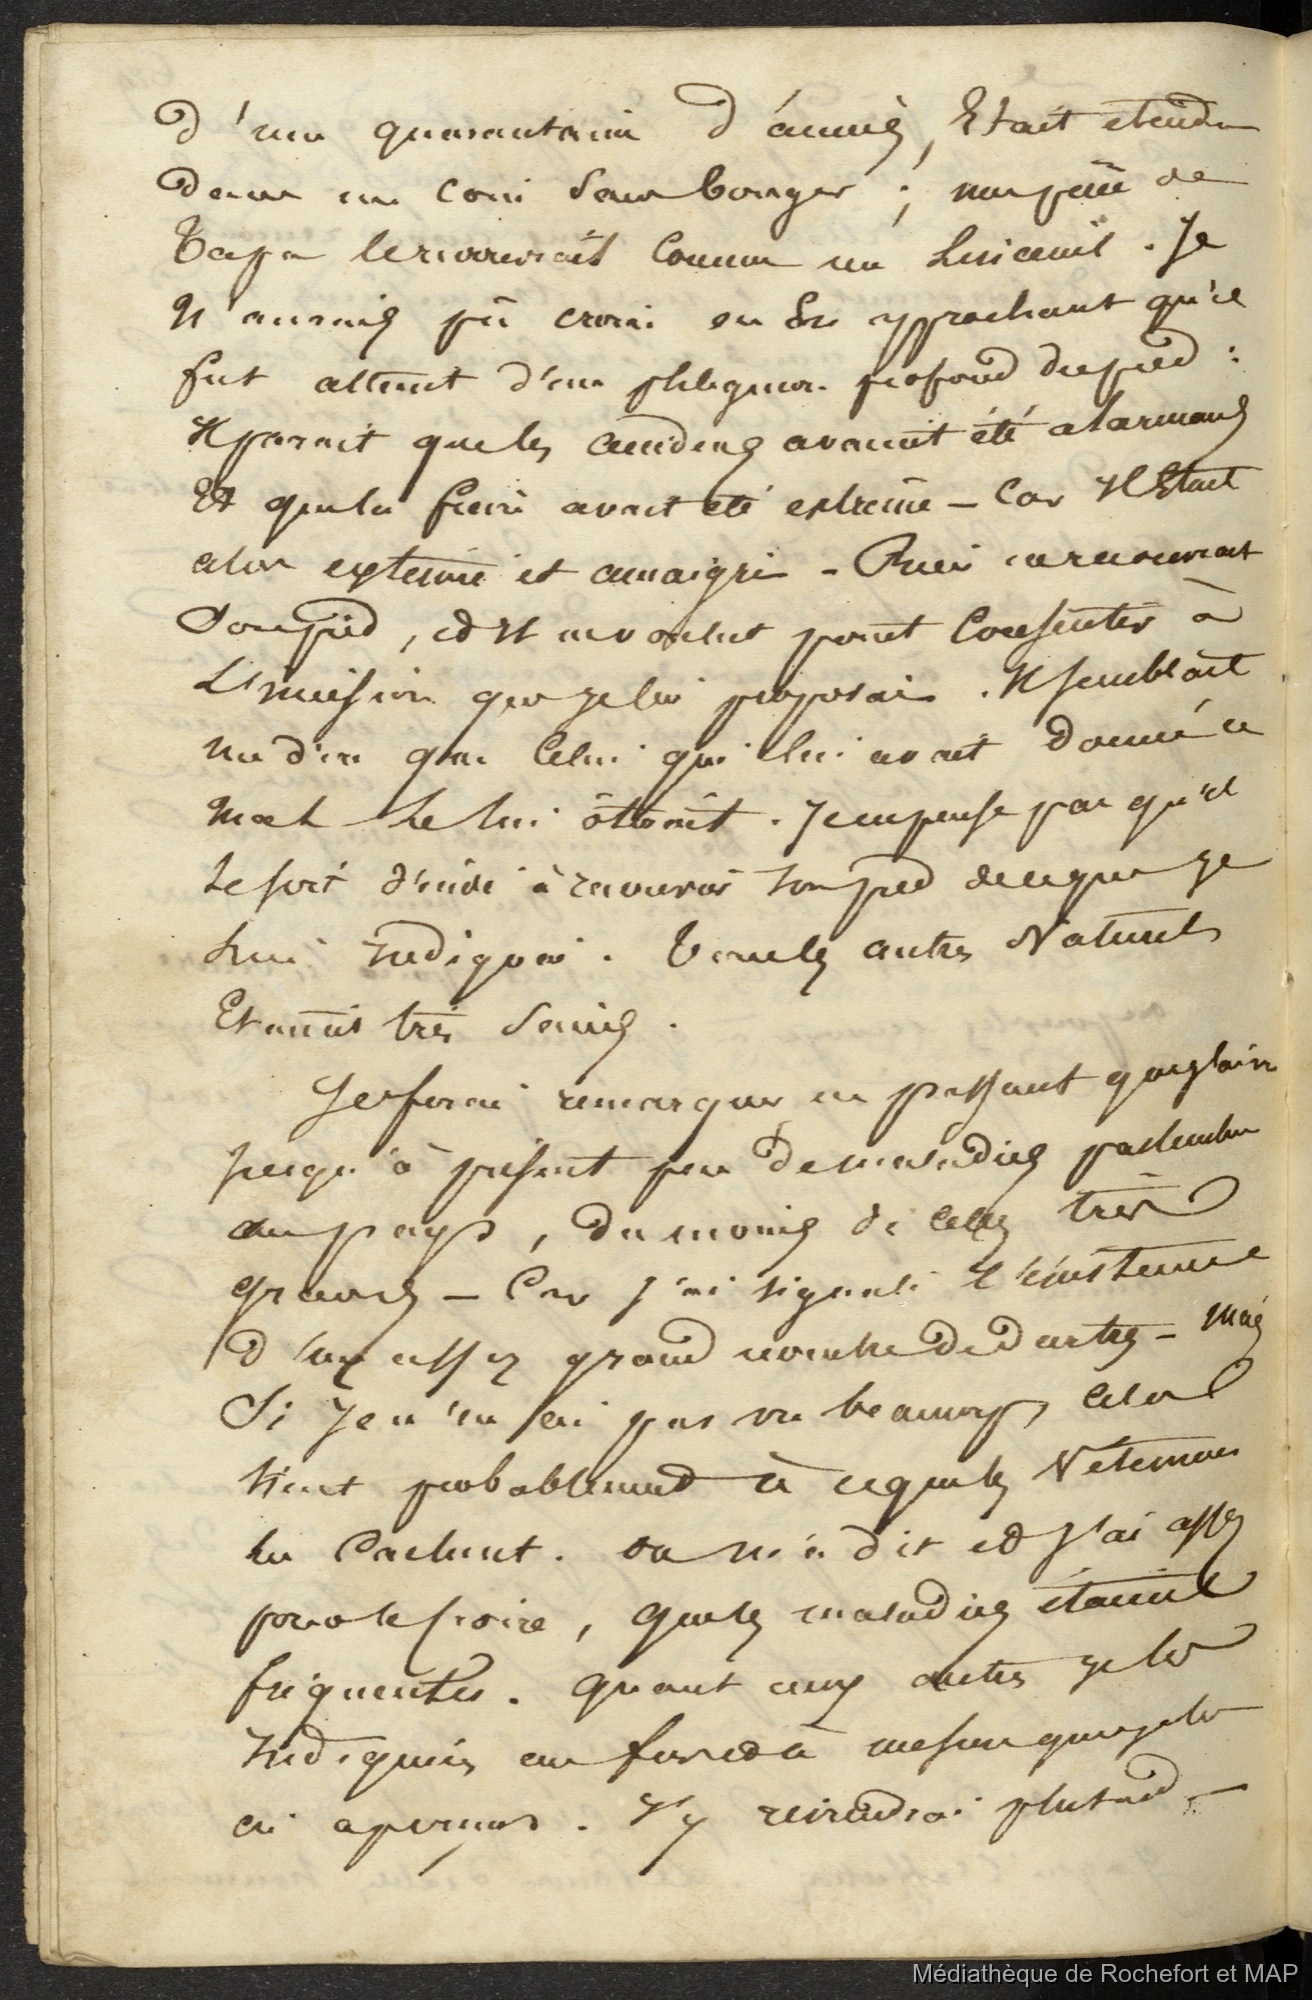 d'une quarantaine d'années, Etait étendu
dans un coin sans bouger ; une pièce de
Tapa le recouvrait Comme un Linceuil. Je
N'aurais pû croire en En approchant qu'il
fut atteint d'un phlegmon profond du pied :
Il parait que les accidens avaient été alarmans
Et que la fièvre avait été extrême – Car Il Etait
alors exténué et amaigri – Rien ne recouvrait
Son pied, et Il ne voulut point Consentir à
L'incision que je lui proposai. Il semblait
me dire que Celui qui lui avait donné ce
mal Le lui ôterait. Je ne pense pas qu'il
Se soit décidé à recouvrir Son pied de ce que je
Lui Indiquai. Tous les autres Naturels
Etaient très Sains.
Je ferai remarquer en passant que j'ai vu
Jusqu'à présent peu de maladies particulières
au pays, du moins de celles très
graves – Car j'ai signalé l'existence
d'un assez grand nombre de dartres – Mais
Si Je n'en ai pas vu beaucoup, Cela
tient probablement à ce que les Vêtemens
les Cachent. On m'a dit et J'ai assez
pour le croire, que les maladies étaient
fréquentes. Quant aux autres je les
Indiquerai au fur et à mesure que je les
ai aperçues. J'y reviendrai plus tard –
Médiathèque de Rochefort et MAP